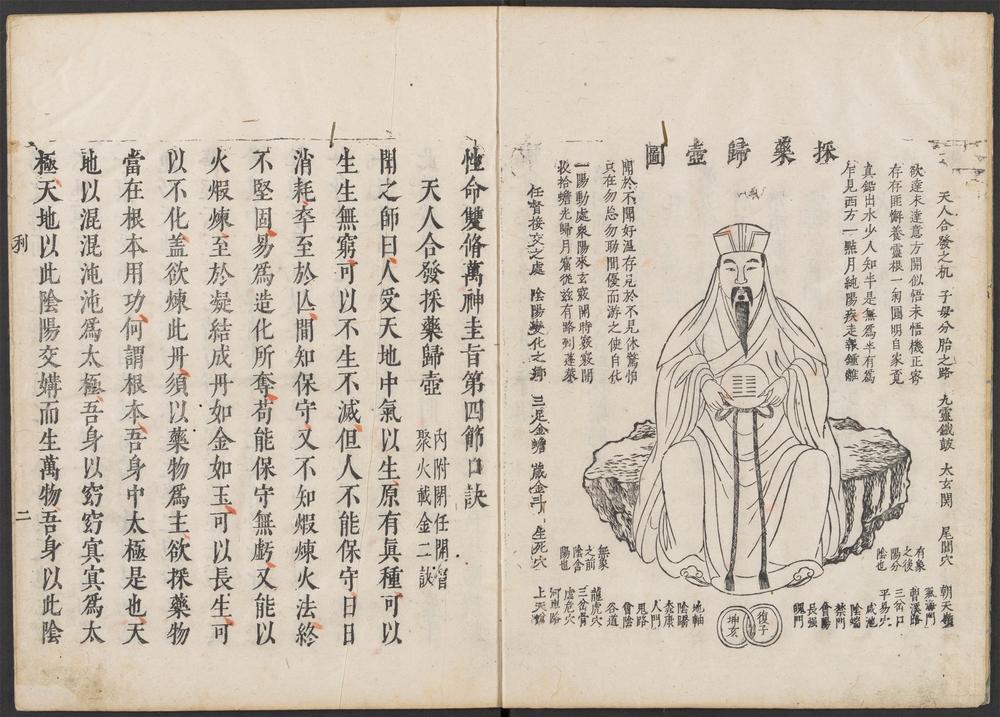 採藥歸壺圖
天人合發之机 子母分胎之路 九靈鐵鼓 太玄関 尾閭穴
欲達未達意方開似悟未悟機正密
存存匪懈養靈根一匊圓明自家覓
真鉛出水少人知半是無爲半有爲
乍見西方一點月純陽疾走報鍾離
開於不開好溫存見於不見休驚怕
只在勿忘勿助間優而游之使自化
一陽動處衆陽來玄竅開時竅竅開
收拾蟾光歸月窟從茲有路到蓬萊
任督接交之處 陰陽變化之鄉 三足金蟾 藏金斗 生死穴
有象
之後
陽分
陰也
無象
之前
陰含
陽也
朝天嶺
氣海門
曹溪路
三岔口
平易穴
咸池
陰端
禁門
會陽
長强
魄門
復子
坤亥
地軸
陰陽
泰康
人門
鬼路
會陰
谷道
龍虎穴
三岔骨
虛危穴
河車路
上天梯
性命雙脩萬神圭旨第四節口訣
天人合發採藥歸壺 內附開任開督
聚火載金二訣
聞之師曰人受天地中氣以生原有眞種可以
生生無窮可以不生不滅但人不能保守日日
消耗卒至於亡間知保守又不知煆煉火法終
不堅固易爲造化所奪苟能保守無虧又能以
火煆煉至於凝結成丹如金如玉可以長生可
以不化盖欲煉此丹須以藥物爲主欲採藥物
當在根本用功何謂根本吾身中太極是也天
地以混混沌沌爲太極吾身以窈窈冥冥爲太
極天地以此陰陽交媾而生萬物吾身以此陰
利 二